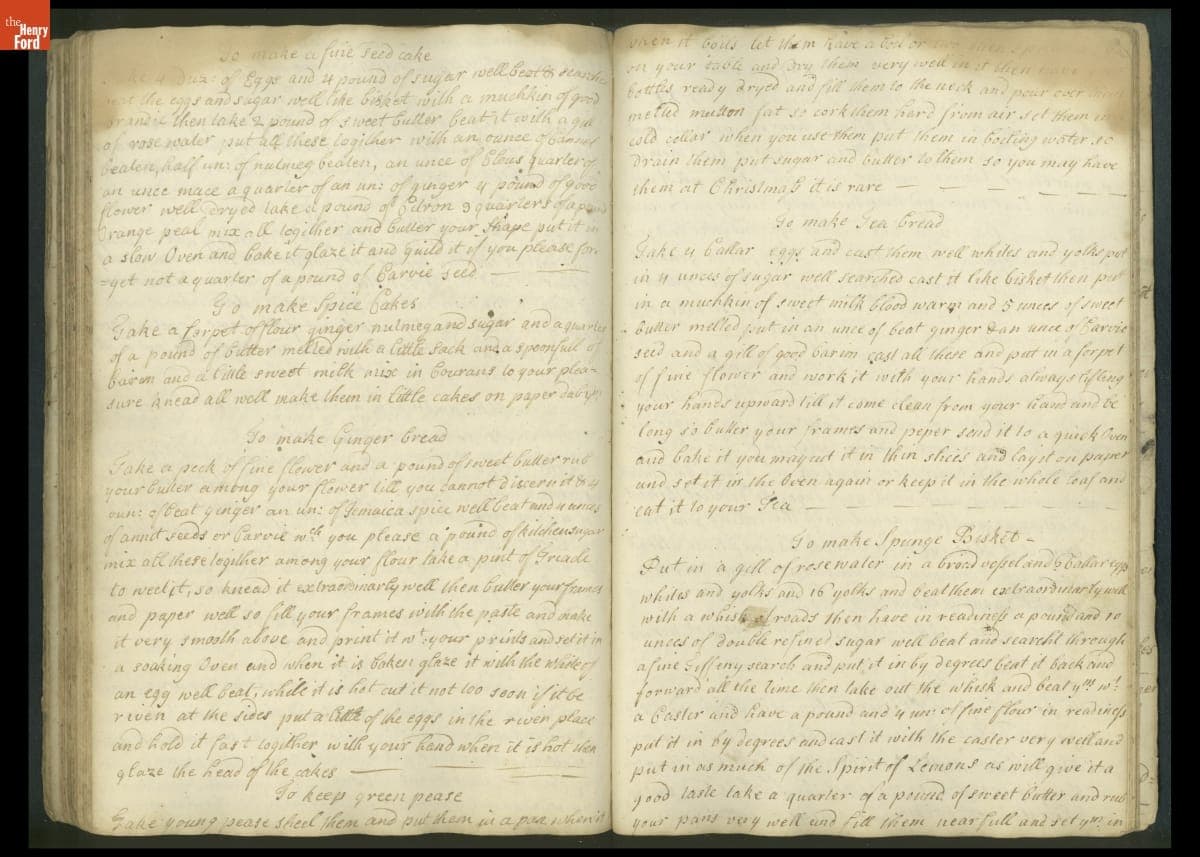 the
Henry
Ford
To make a fine seed cake
4 Duz: of Eggs and 4 pound of sugar well beat & searched
the eggs and sugar well like bisket with a muchkin of good
then take 2 pound of sweet butter beat it with a gill
of rose water put all these togither with an ounce of
beaten, half un: of nutmeg beaten, an unce of Clous quarter of
an unce mace a quarter of an un: of ginger 4 pound of good
flower well Dryed take a pound of Citron 3 quarters of a pound
Orange peal mix all togither and butter your shape put it in
a slow Oven and bake it glaze it and guild it if you please for
=get not a quarter of a pound of Carvie seed —
To make Spice Cakes
Take a forpet of flour ginger nutmeg and sugar and a quarter
of a pound of butter melted with a little sack and a spoonfull of
barm and a little sweet milk mix in Courans to your plea-
sure knead all well make them in little cakes on paper
To make Ginger bread
Take a peck of fine flower and a pound of sweet butter rub
your butter among your flower till you cannot discern it & 4
oun: of beat ginger an un: of Jemaica spice well beat and 4 unces
of annit seeds or Carvie wch you please a pound of kitchensugar
mix all these togither among your flour take a pint of Treacle
to weet it, so knead it extraordinarly well then butter your frames
and paper well so fill your frames with the paste and make
it very smooth above and print it wt: your prints and set it in
a soaking Oven and when it is baken glaze it with the white of
an egg well beat, while it is hot cut it not too soon if it be
riven at the sides put a little of the eggs in the riven place
and hold it fast togither with your hand when it is hot then
glaze the head of the cakes —
To keep green pease
Take young pease sheel them and put them in a pan when it
when it boils let them have a boil or two then
on your table and Dry them very well in it then have
bottles ready dryed and fill them to the neck and pour over them
melted mutton fat so cork them hard from air set them in a
cold cellar when you use them put them in boiling water so
Drain them put sugar and butter to them so you may have
them at Christmass it is rare — — — — —
To make Tea bread
Take 4 Callar eggs and cast them well whites and yolks put
in 4 unces of sugar well searched cast it like bisket then put
in a muchkin of sweet milk blood warm and 5 unces of sweet
butter melted put in an unce of beat ginger & an unce of Carvie
seed and a gill of good barm cast all these and put in a forpet
of fine flower and work it with your hands always lifting
your hands upward till it come clean from your hand and be
long so butter your frames and peper send it to a quick Oven
and bake it you may cut it in thin slices and lay it on paper
and set it in the Oven again or keep it in the whole loaf and
eat it to your Tea — — — —
To make Spunge Bisket —
Put in a gill of rose water in a broad vessel and 6 Callar eggs
whites and yolks and 16 yolks and beat them extraordinarly well
with a whisk of roads then have in readiness a pound and 10
unces of double refined sugar well beat and searcht through
a fine Tiffiny search and put it in by degrees beat it back and
forward all the time then take out the whisk and beat ym wt
a Caster and have a pound and 4 un: of fine flour in readiness
put it in by degrees and cast it with the caster very well and
put in as much of the Spirit of Lemons as will give it a
good taste take a quarter of a pound of sweet butter and rub
your pans very well and fill them near full and set ym in